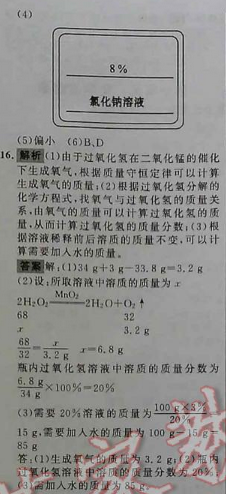 (4)
8%
氯化钠溶液
(5)偏小 (6)B、D
16. 解析 (1)由于过氧化氢在二氧化锰的催化
下生成氧气,根据质量守恒定律可以计算
生成氧气的质量;(2)根据过氧化氢分解的
化学方程式,找氧气与过氧化氢的质量关
系,由氧气的质量可以计算过氧化氢的质
量,从而计算过氧化氢的质量分数;(3)根
据溶液稀释前后溶质的质量不变,可以计
算需要加入水的质量。
答案 解:(1)34 g+3 g-33.8 g=3.2 g
(2)设:所取溶液中溶质的质量为 x
MnO₂
2H₂O₂══2H₂O+O₂↑
68 32
x 3.2 g
68/32=x/3.2 g x=6.8 g
瓶内过氧化氢溶液中溶质的质量分数为
6.8 g/34 g×100%=20%
(3)需要 20%溶液的质量为 100 g×3%/20%
15 g,需要加入水的质量为 100 g-15 g=
85 g
答:(1)生成氧气的质量为 3.2 g;(2)瓶内
过氧化氢溶液中溶质的质量分数为 20%;
(3)需加入水的质量为 85 g。